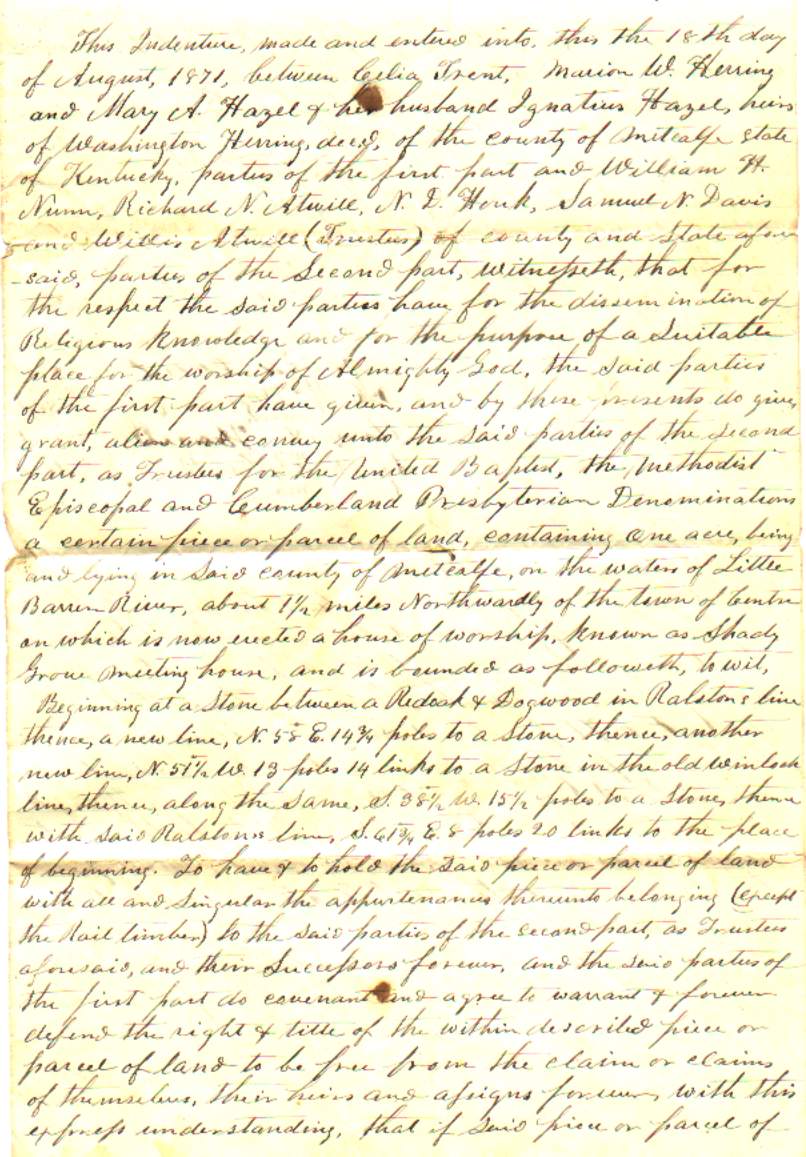 This Indenture, made and entered into, this the 18th day
of August, 1871, between Celia Trent, Marion W. Herring
and Mary A. Hazel & her husband Ignatius Hazel, heirs
of Washington Herring, decd, of the county of Metcalfe state
of Kentucky, parties of the first part and William H.
Nunn, Richard N. Atwill, N. D. Houk, Samuel N. Davis
and Willis Atwill (Trustees) of county and State afore
said, parties of the Second part, witnesseth, that for
the respect the said parties have for the dissemination of
Religious Knowledge and for the purpose of a Suitable
place for the worship of Almighty God, the said parties
of the first part have given, and by these presents do give,
grant, alien and convey unto the said parties of the second
part, as Trustees for the United Baptist, the Methodist
Episcopal and Cumberland Presbyterian Denominations
a certain piece or parcel of land, containing One acre, being
and lying in said county of Metcalfe, on the waters of Little
Barren River, about 1½ miles Northwardly of the town of Centre
on which is now erected a house of worship, known as Shady
Grove Meeting house, and is bounded as followeth, to wit,
Beginning at a Stone between a Redoak & Dogwood in Ralstons line
thence, a new line, N. 58 E. 14¾ poles to a Stone, thence, another
new line, N. 51½ W. 13 poles 14 links to a Stone in the old Winlock
line, thence, along the Same, S. 38½ W. 15½ poles to a Stone, thence
with said Ralstons line, S. 61¾ E. 8 poles 20 links to the place
of beginning. To have & to hold the said piece or parcel of land
with all and Singular the appurtenances thereunto belonging (except
the Rail timber) to the said parties of the second part, as Trustees
aforesaid, and their Successors forever, and the said parties of
the first part do covenant and agree to warrant & forever
defend the right & title of the within described piece or
parcel of land to be free from the claim or claims
of themselves, their heirs and assigns forever, with this
express understanding, that if said piece or parcel of